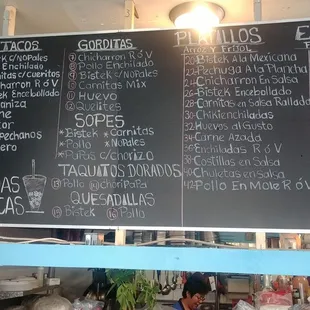 TACOS
k c/NoPales
Enchilado
c/Cueritos
Chicharron R ó V
tek Encebollado
aniza
NAS
CAS
GORDITAS
7 Chicharron R ó V
8 Pollo Enchilado
9 Bistek c/NoPales
10 Carnitas Mix
11 Huevo
12 Quelites
SOPES
*Bistek *Carnitas
*Pollo *NoPales
*Papas c/Chorizo
TAQUITOS DORADOS
13 Pollo @14 choriPapa
QUESADILLAS
15 Bistek 16 Pollo
PLATILLOS
Arroz y Frijol
20 Bistek A la Mexicana
22 Pechuga A la Plancha
24 Chicharron En Salsa
26 Bistek Encebollado
28 Carnitas en Salsa
30 Chikienchiladas
32 Huevos al Gusto
34 Carne Azada
35 Enchiladas R ó V
38 Costillas en Salsa
40 Chuletas en salsa
42 Pollo En Mole R ó V